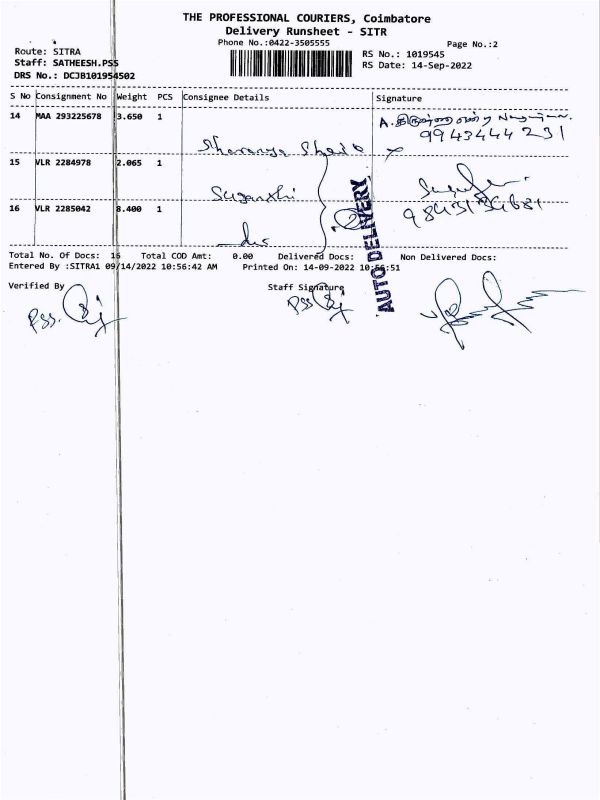 THE PROFESSIONAL COURIERS, Coimbatore
Delivery Runsheet - SITR
Phone No.:0422-3505555
Page No.:2
Route: SITRA
Staff: SATHEESH.PSS
DRS No.: DCJB101954502
RS No.: 1019545
RS Date: 14-Sep-2022
S No Consignment No Weight PCS Consignee Details Signature
14 MAA 293225678 3.650 1
9943444231
15 VLR 2284978 2.065 1
Suganthi
16 VLR 2285042 8.400 1
do
AUTO DELIVERY
Total No. Of Docs: 16 Total COD Amt: 0.00 Delivered Docs: Non Delivered Docs:
Entered By :SITRA1 09/14/2022 10:56:42 AM Printed On: 14-09-2022 10:56:51
Verified By Staff Signature
PSS. PSS